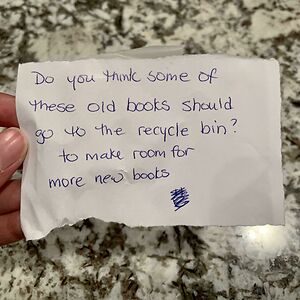 Do you think some of
these old books should
go to the recycle bin?
to make room for
more new books